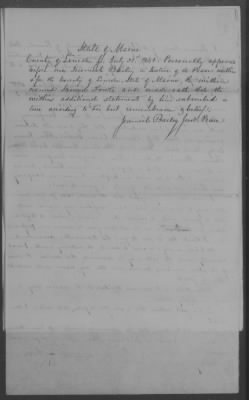 State of Maine
County of Lincoln ss July 31st 18 Personally appeared
before me Jeremiah Bailey a Justice of the Peace within
& for the County of Lincoln State of Maine the within
named Samuel and made oath that the
within additional statements by him subscribed is
true according to his best remembrance & belief.
Jeremiah Bailey Just. Peace